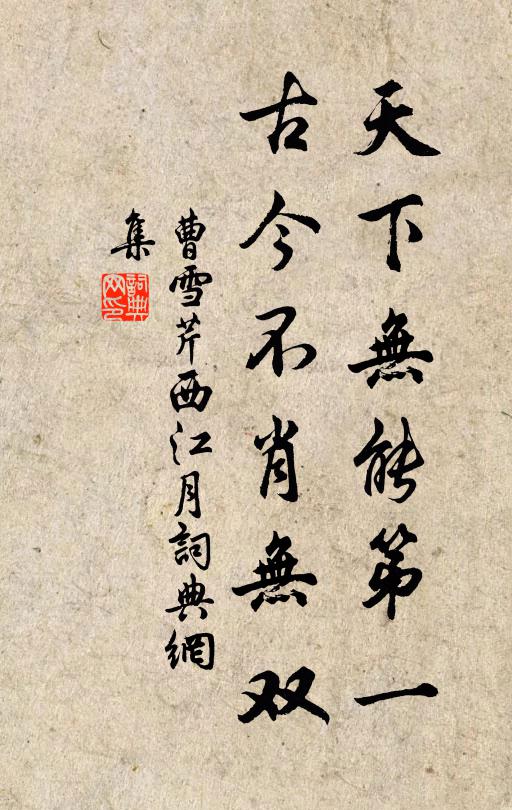 天下無能第一
古今不肖無双
曹雪芹西江月詞典網
集
詞典
网印